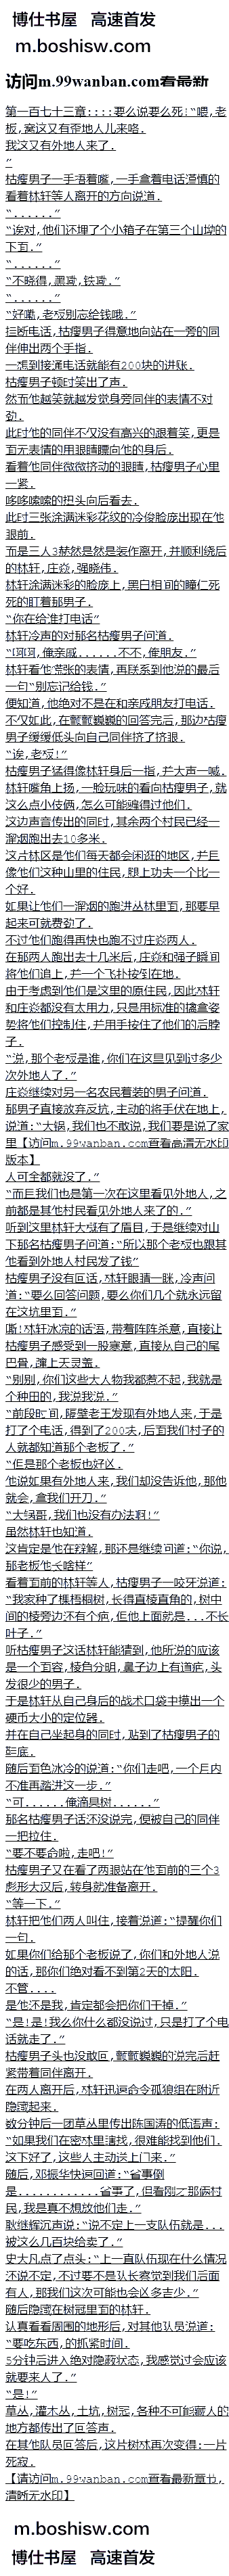 博仕书屋 高速首发
m.boshisw.com
访问m.99wanban.com查看最新
第一百七十三章::::要么说要么死!“喂,老
板,窝这又有歪地人儿来咯.
我这又有外地人来了.
”
枯瘦男子一手捂着嘴,一手拿着电话谨慎的
看着林轩等人离开的方向说道.
“......”
“诶对,他们还埋了个小箱子在第三个山坳的
下面.”
“......”
“不晓得,黑鸢,铁鸢.”
“......”
“好嘞,老板别忘给钱哦.”
挂断电话,枯瘦男子得意地向站在一旁的同
伴伸出两个手指.
一想到接通电话就能有200块的进账.
枯瘦男子顿时笑出了声.
然而他越笑就越发觉身旁同伴的表情不对
劲.
此时他的同伴不仅没有高兴的跟着笑,更是
面无表情的用眼睛瞟向他的身后.
看着他同伴微微挤动的眼睛,枯瘦男子心里
一紧.
哆哆嗦嗦的扭头向后看去.
此时三张涂满迷彩花纹的冷俊脸庞出现在他
眼前.
而是三人3赫然是然是装作离开,并顺利绕后
的林轩,庄焱,强晓伟.
林轩涂满迷彩的脸庞上,黑白相间的瞳仁死
死的盯着那男子.
“你在给谁打电话”
林轩冷声的对那名枯瘦男子问道.
“啊啊,俺亲戚......不不,俺朋友.”
林轩看他慌张的表情,再联系到他说的最后
一句“别忘记给钱.”
便知道,他绝对不是在和亲戚朋友打电话.
不仅如此,在颤颤巍巍的回答完后,那边枯瘦
男子缓缓低头向自己同伴挤了挤眼.
“诶,老板!”
枯瘦男子猛得像林轩身后一指,并大声一喊.
林轩嘴角上扬,一脸玩味的看向枯瘦男子,就
这么点小伎俩,怎么可能骗得过他们.
这边声音传出的同时,其余两个村民已经一
溜烟跑出去10多米.
这片林区是他们每天都会闲逛的地区,并且
像他们这种山里的住民,腿上功夫一个比一
个好.
如果让他们一溜烟的跑进丛林里面,那要早
起来可就费劲了.
不过他们跑得再快也跑不过庄焱两人.
在那两人跑出去十几米后,庄焱和强子瞬间
将他们追上,并一个飞扑按到在地.
由于考虑到他们是这里的原住民,因此林轩
和庄焱都没有太用力,只是用标准的擒拿姿
势将他们控制住,并用手按住了他们的后脖
子.
“说,那个老板是谁,你们在这里见到过多少
次外地人了.”
庄焱继续对另一名农民着装的男子问道.
那男子直接放弃反抗,主动的将手伏在地上,
说道:“大锅,我们也不敢说,我们要是说了家
里【访问m.99wanban.com查看高清无水印
版本】
人可全都就没了.”
“而且我们也是第一次在这里看见外地人,之
前都是其他村民看见外地人来了的.”
听到这里林轩大概有了眉目,于是继续对山
下那名枯瘦男子问道:“所以那个老板也跟其
他看到外地人村民发了钱”
枯瘦男子没有回话,林轩眼睛一眯,冷声问
道:“要么回答问题,要么你们几个就永远留
在这坑里面.”
嘶!林轩冰凉的话语,带着阵阵杀意,直接让
枯瘦男子感受到一股寒意,直接从自己的尾
巴骨,蹿上天灵盖.
“别别,你们这些大人物我都惹不起,我就是
个种田的,我说我说.”
“前段时间,隔壁老王发现有外地人来,于是
打了个电话,得到了200块,后面我们村子的
人就都知道那个老板了.”
“但是那个老板也好凶.
他说如果有外地人来,我们却没告诉他,那他
就会,拿我们开刀.”
“大锅哥,我们也没有办法啊!”
虽然林轩也知道.
这肯定是他在辩解,那还是继续问道:“你说,
那老板他长啥样”
看着面前的林轩等人,枯瘦男子一咬牙说道:
“我家种了棵梧桐树,长得直棱直角的,树中
间的棱旁边还有个疤,但他上面就是...不长
叶子.”
听枯瘦男子这话林轩能猜到,他所说的应该
是一个面容,棱角分明,鼻子边上有道疤,头
发很少的男子.
于是林轩从自己身后的战术口袋中摸出一个
硬币大小的定位器.
并在自己坐起身的同时,贴到了枯瘦男子的
鞋底.
随后面色冰冷的说道:“你们走吧,一个月内
不准再踏进这一步.”
“可......俺滴臭树......”
那名枯瘦男子话还没说完,便被自己的同伴
一把拉住.
“要不要命啦,走吧!”
枯瘦男子又在看了两眼站在他面前的三个3
彪形大汉后,转身就准备离开.
“等一下.”
林轩把他们两人叫住,接着说道:“提醒你们
一句.
如果你们给那个老板说了,你们和外地人说
的话,那你们绝对看不到第2天的太阳.
不管....
是他还是我,肯定都会把你们干掉.”
“是!是!我么你什么都没说过,只是打了个电
话就走了.”
枯瘦男子头也没敢回,颤颤巍巍的说完后赶
紧带着同伴离开.
在两人离开后,林轩迅速命令孤狼组在附近
隐蔽起来.
数分钟后一团草丛里传出陈国涛的低语声:
“如果我们在密林里清找,很难能找到他们.
这下好了,这些人主动送上门来.”
随后,邓振华快速回道:“省事倒
是............省事了,但看刚才那俩村
民,我是真不想放他们走.”
耿继辉沉声说:“说不定上一支队伍就是...
被这么几百块给卖了.”
史大凡点了点头:“上一直队伍现在什么情况
还说不定,不过要不是队长察觉到我们后面
有人,那我们这次可能也会凶多吉少.”
随后隐蔽在树冠里面的林轩.
认真看看周围的地形后,对其他队员说道:
“要吃东西,的抓紧时间.
5分钟后进入绝对隐蔽状态,我感觉过会应该
就要来人了.”
“是!”
草丛,灌木丛,土坑,树冠,各种不可能藏人的
地方都传出了回答声.
在其他队员回答后,这片树林再次变得:一片
死寂.
【请访问m.99wanban.com查看最新章节,
清晰无水印】
m.boshisw.com
博仕书屋 高速首发